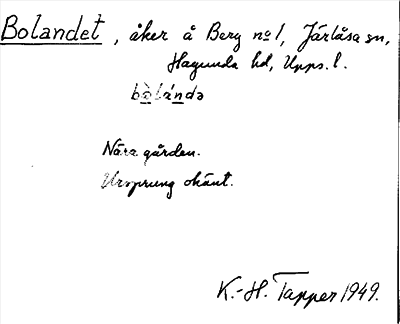 Bolandet, åker å Berg no 1, Järlåsa sn,
Hagunda hd, Upps. l.
bòlándə
Nära gården.
Ursprung okänt.
K.-H. Tapper 1949.